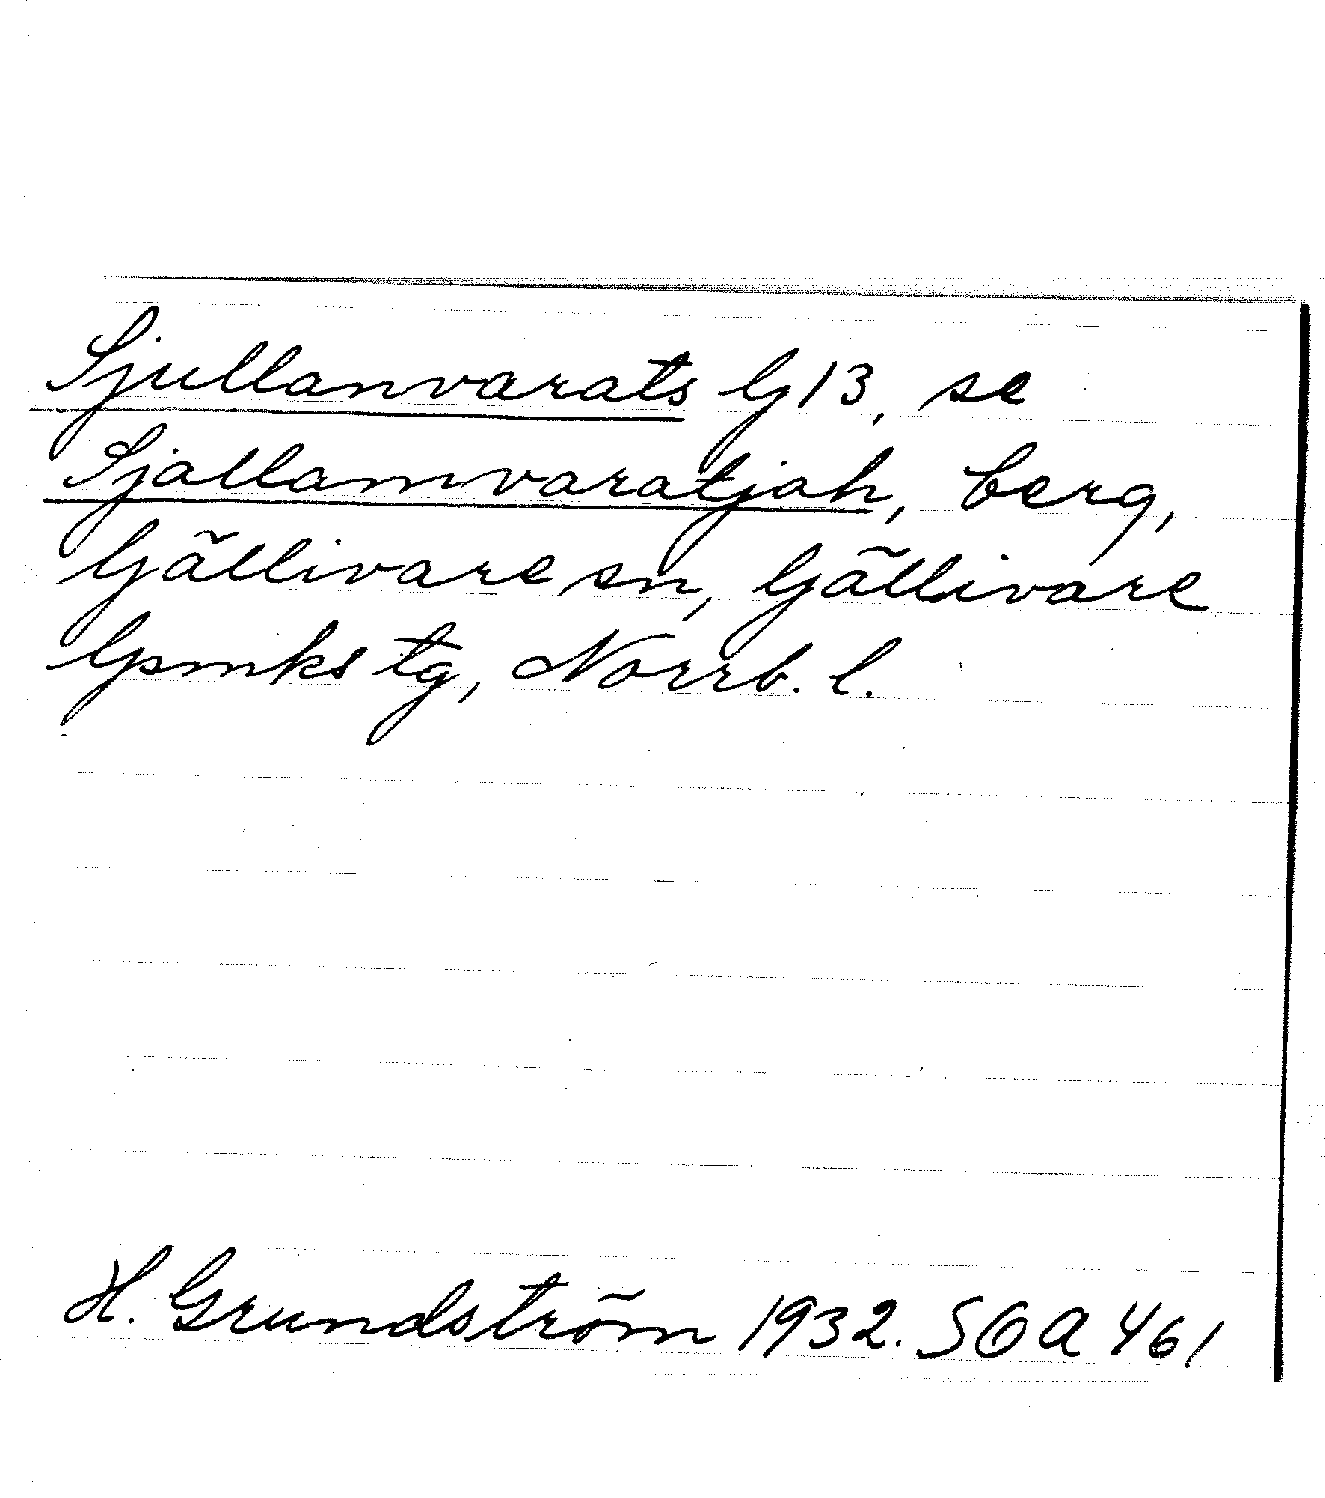 Sjullanvarats G13, se
Sjallamvaratjah, berg,
Gällivare sn, Gällivare
lpmks tg, Norrb. l.
H. Grundström 1932. SOA 461